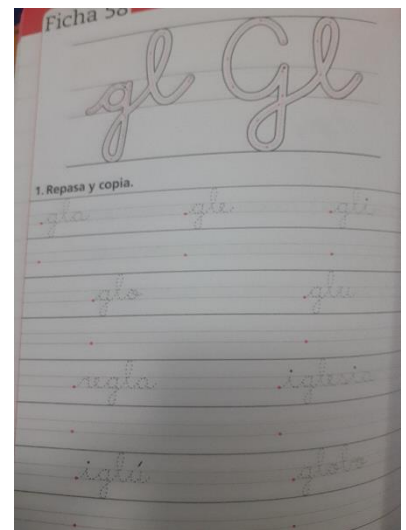 Ficha 58
gl Gl
1. Repasa y copia.
gla gle gli
glo glu
regla iglesia
iglú globo